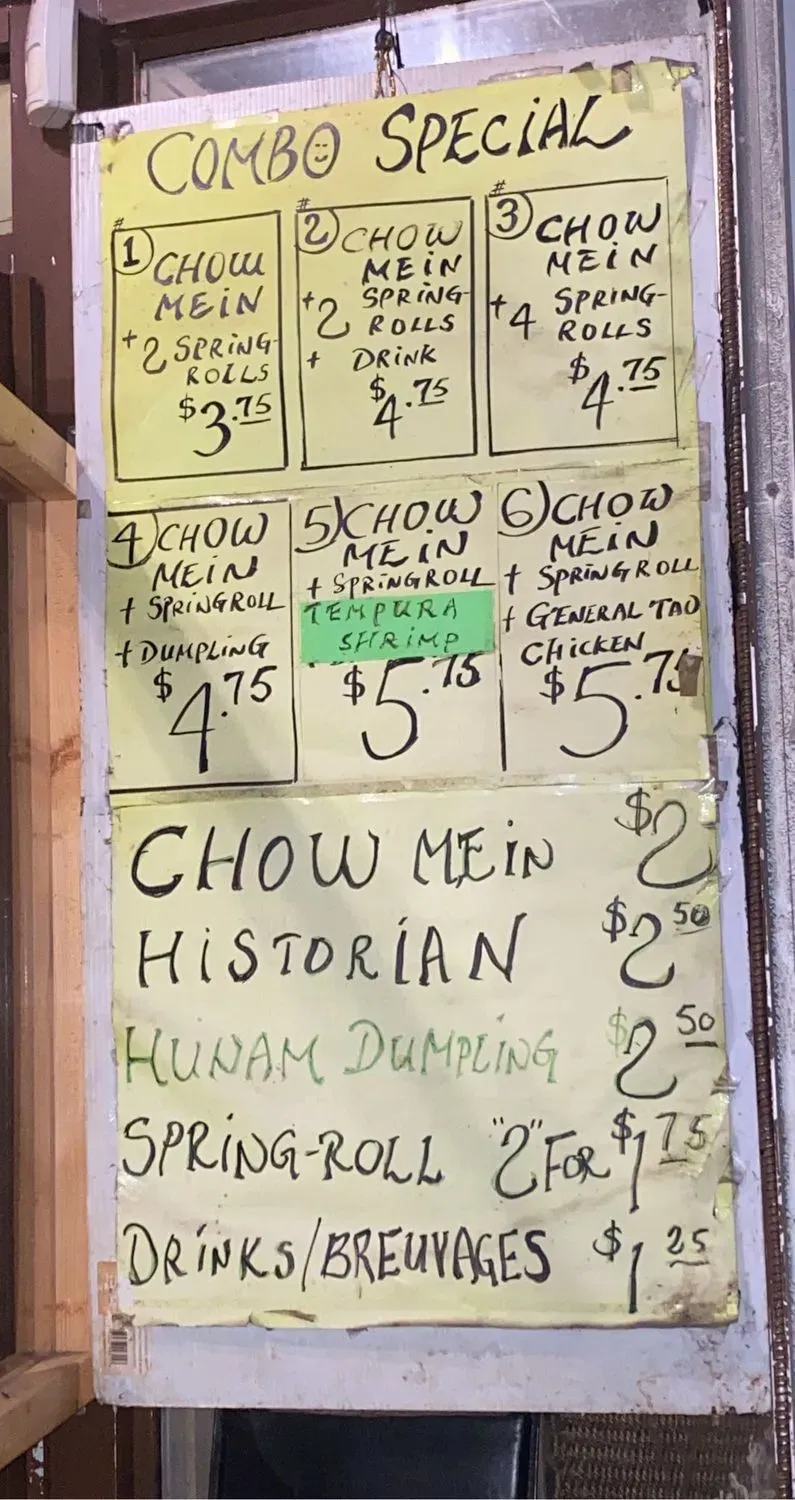 COMBO SPECIAL
# 1 CHOW
MEIN
+ 2 SPRING-
ROLLS
$3.75
# 2 CHOW
MEIN
+ 2 SPRING-
ROLLS
+ DRINK
$4.75
# 3 CHOW
MEIN
+ 4 SPRING-
ROLLS
$4.75
4) CHOW
MEIN
+ SPRINGROLL
+ DUMPLING
$4.75
5) CHOW
MEIN
+ SPRINGROLL
TEMPURA
SHRIMP
$5.75
6) CHOW
MEIN
+ SPRINGROLL
+ GENERAL TAO
CHICKEN
$5.75
CHOW MEIN $2
HISTORIAN $2 50
HUNAM DUMPLING $2 50
SPRING-ROLL "2" FOR $1 75
DRINKS/BREUVAGES $1 25